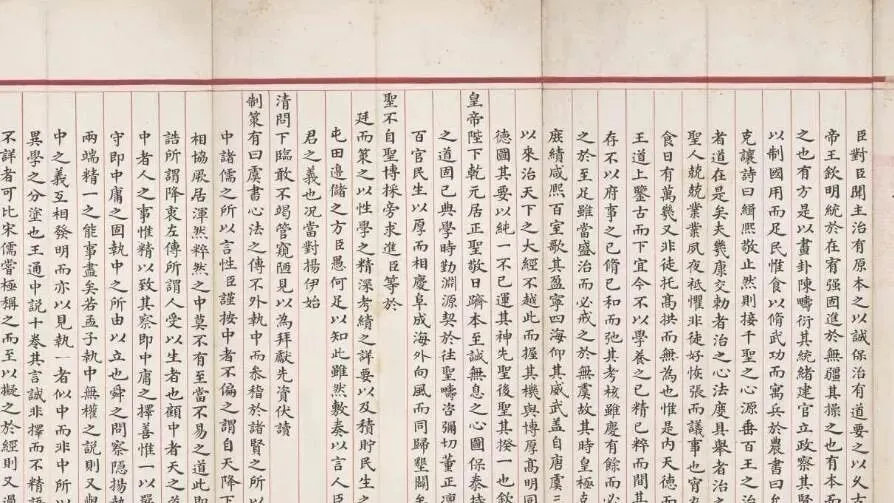 臣對臣聞主治有原本之以誠保治有道要之以久古
帝王欽明統於在宥强固進於無疆其操之也有本而
之也有方是以畫卦陳疇衍其統緒建官立政察其賢
以制國用而足民惟食以脩武功而寓兵於農書曰允
克讓詩曰緝熙敬止然則接千聖之心源垂百王之治
者道在是矣夫幾康交勅者治之心法具舉者治之
聖人兢兢業業夙夜祗懼非徒好恢張而議事也宵
食日有萬幾又非徒托髙拱而無為也惟是内天德而
王道上鑒古而下宜今不以學養之已精已粹而間其
存不以府事之已脩已和而弛其考核雖慶有餘而必
之於至足雖當盛治而必戒之於無虞故其時皇極克
庶績咸熙百室歌其盈寧四海仰其威武盖自唐虞三
以來治天下之大經不越此而握其機與博厚高明同
德圖其要以純一不已運其神先聖後聖其揆一也欽
皇帝陛下乾元居正聖敬日躋本至誠無息之心圖保泰持
之道固已典學時勤淵源契於往聖疇咨彌切董正凛
百官民生以厚而相慶阜成海外向風而同歸墾闢
聖不自聖博採旁求進臣等於
廷而策之以性學之精深考績之詳要以及積貯民生之
屯田邊儲之方臣愚何足以知此雖然敷奏以言人臣
君之義也况當對揚伊始
清問下臨敢不竭管窺陋見以為拜獻先資伏讀
制策有曰虞書心法之傳不外執中而叅稽於諸賢之所以
中諸儒之所以言性臣謹按中者不偏之謂自天降下
相協厥居渾然粹然之中莫不有至當不易之道此即
誥所謂降衷左傳所謂人受以生者也顧中者天之道
中者人之事惟精以致其察即中庸之擇善惟一以嚴
守即中庸之固執中之所由以立也舜之問察隱揚執
兩端精一之能事盡矣若孟子執中無權之說則又與
中之義互相發明而亦以見執一者似中而非中所以
異學之分塗也王通中說十卷其言誠非擇而不精語
不詳者可比宋儒嘗極稱之而至以擬之於經則又過